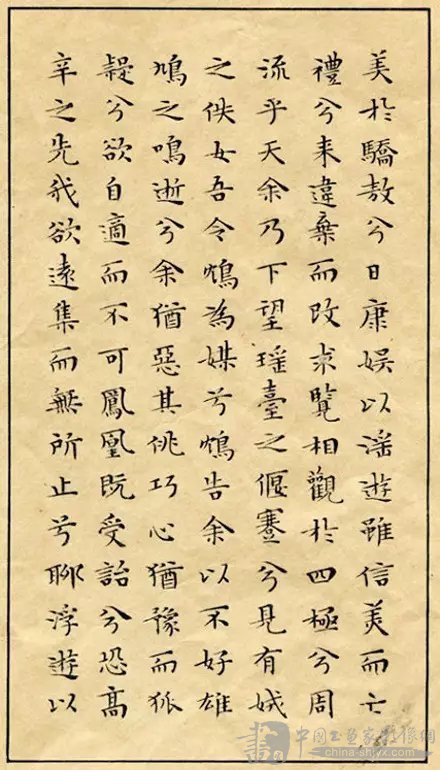 美於驕敖兮日康娱以滛遊雖信美而亡
禮兮来違棄而改求覽相觀於四極兮周
流乎天余乃下望瑶臺之偃蹇兮見有娀
之佚女吾令鴆為媒兮鴆告余以不好雄
鳩之鳴逝兮余猶惡其佻巧心猶豫而狐
疑兮欲自適而不可鳳凰既受詒兮恐髙
辛之先我欲遠集而無所止兮聊浮遊以
china-shjyx.com